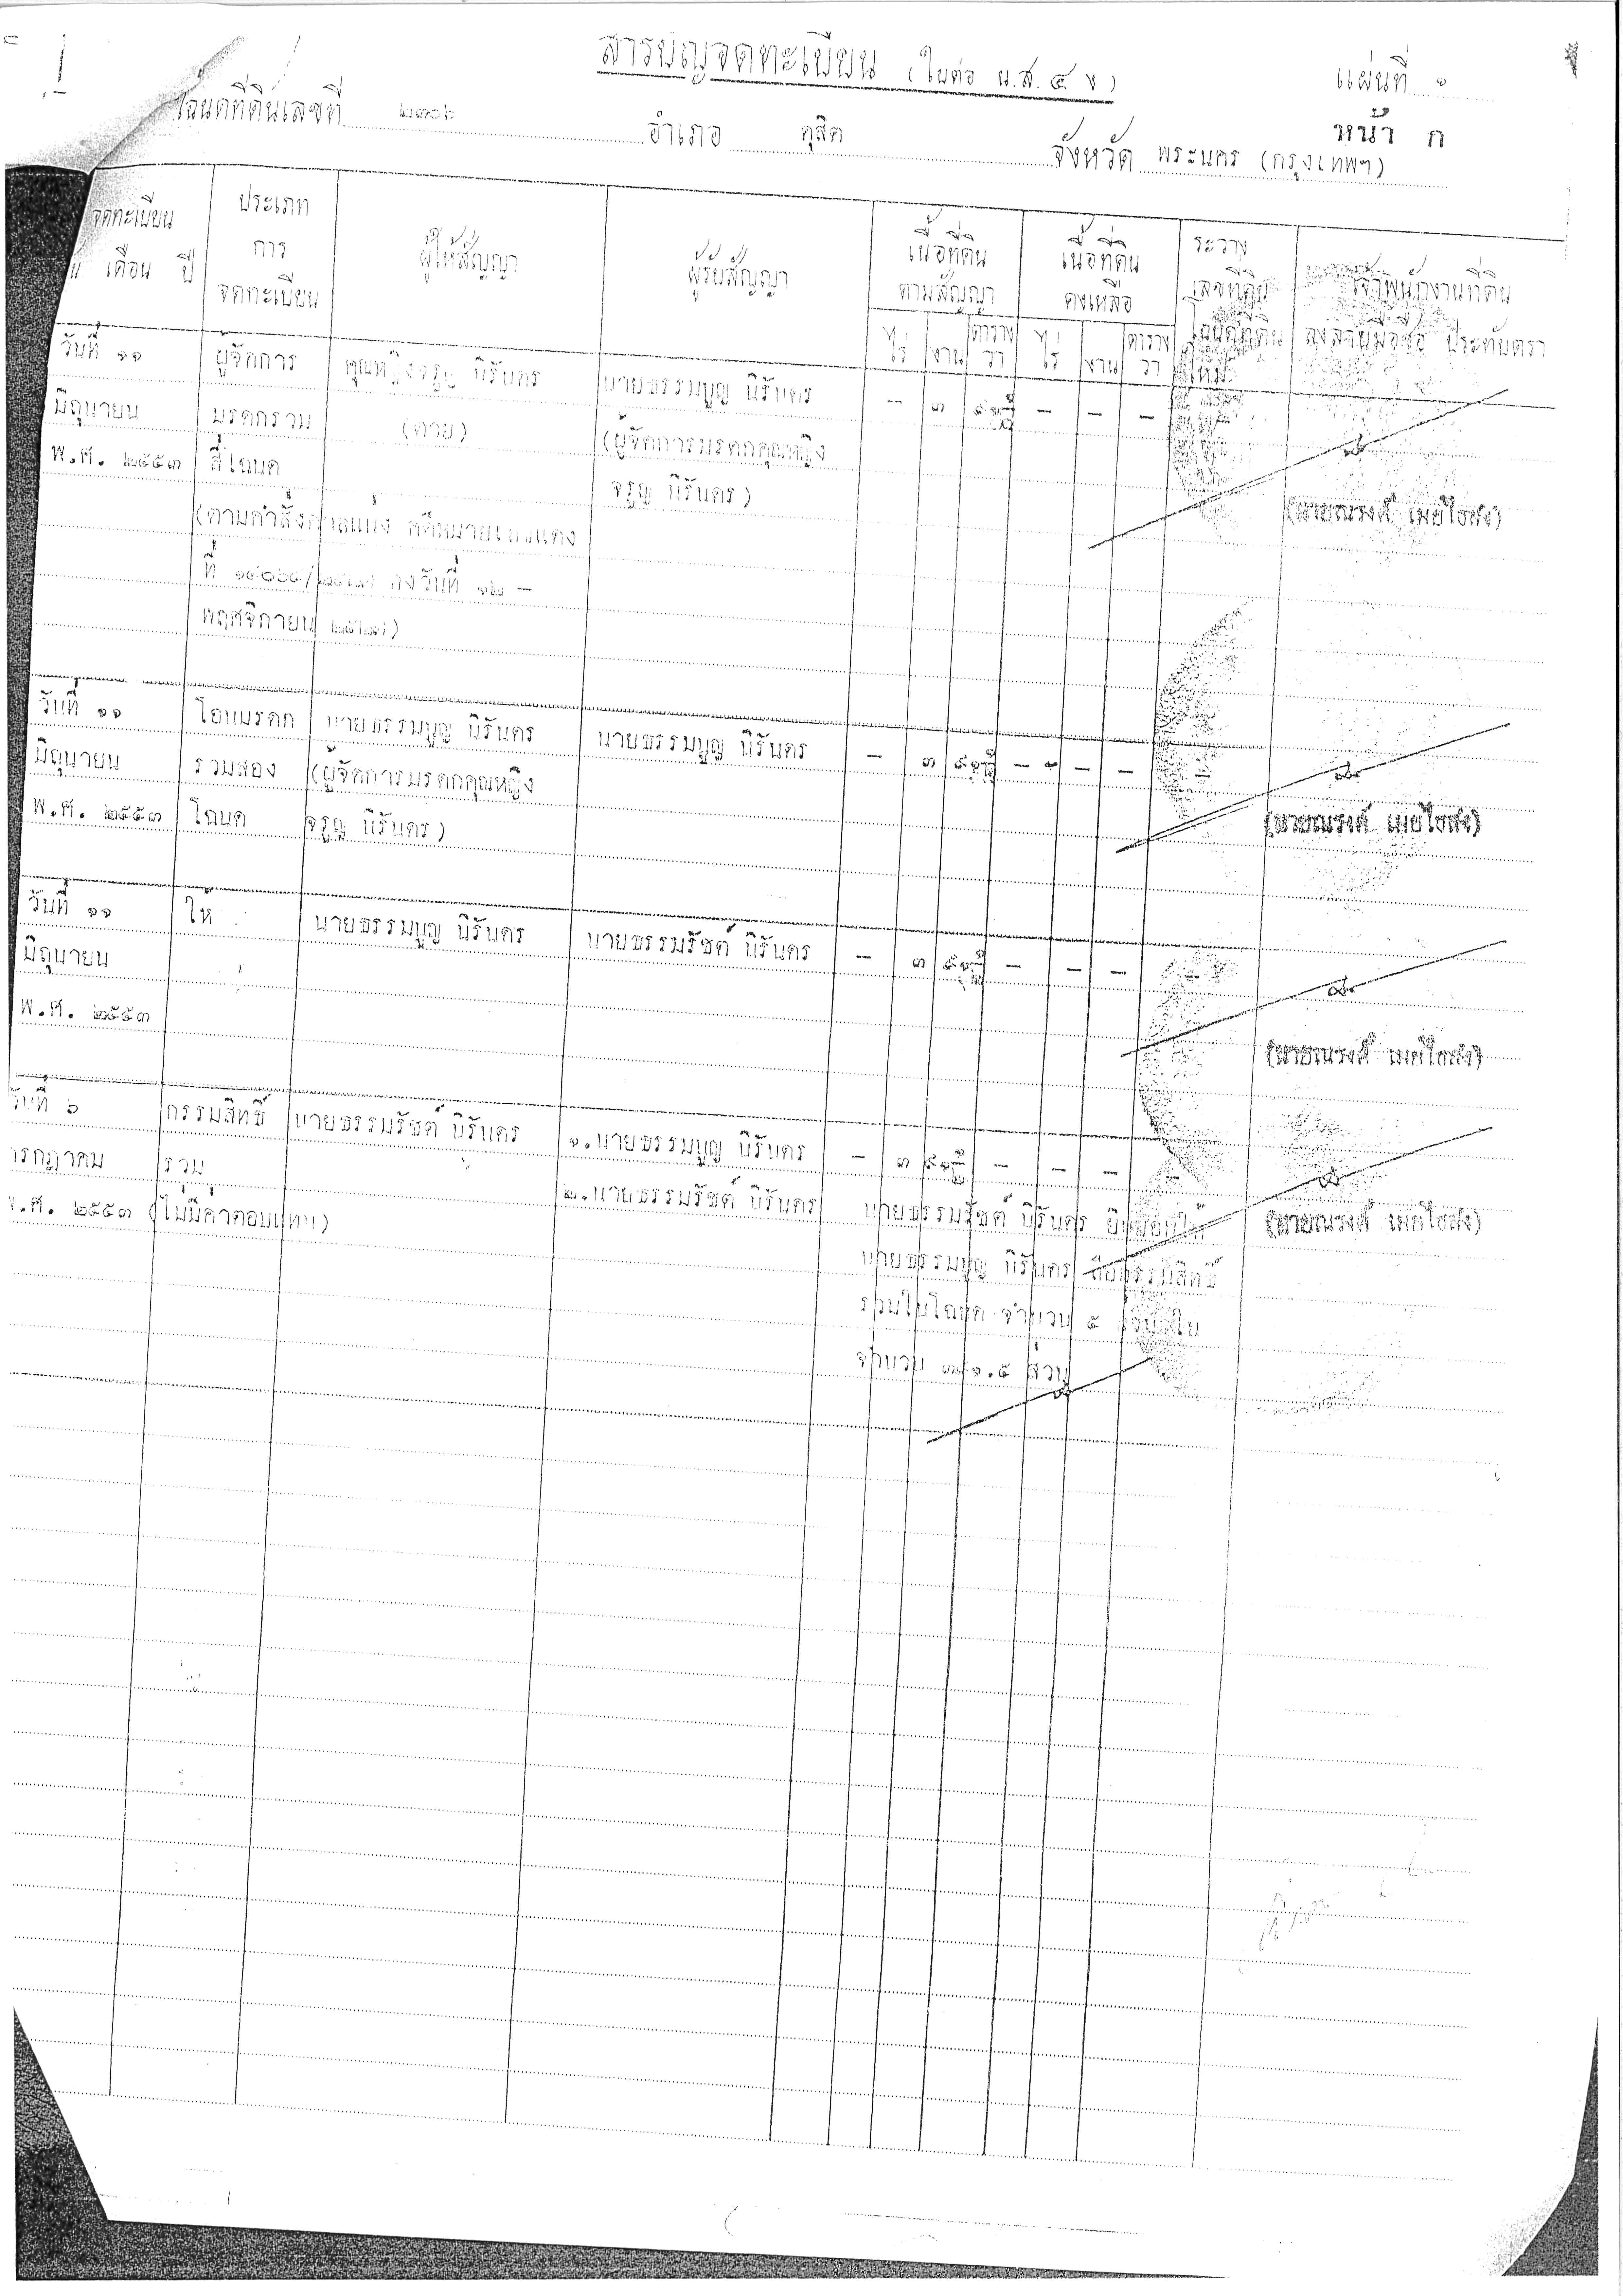 สารบัญจดทะเบียน (ใบต่อ น.ส. ๔ ง)
แผ่นที่ ๑
หน้า ก
โฉนดที่ดินเลขที่ อำเภอ ดุสิต จังหวัด พระนคร (กรุงเทพฯ)
จดทะเบียน
เดือน ปี
ประเภท
การ
จดทะเบียน
ผู้ให้สัญญา
ผู้รับสัญญา
เนื้อที่ดิน
ตามสัญญา
ไร่ งาน ตาราง
วา
เนื้อที่ดิน
คงเหลือ
ไร่ งาน ตาราง
วา
ระวาง
เลขที่ดิน
โฉนดที่ดิน
ใหม่
เจ้าพนักงานที่ดิน
ลงลายมือชื่อ ประทับตรา
วันที่ ๑๑
มิถุนายน
พ.ศ. ๒๕๕๓
ผู้จัดการ
มรดกรวม
สี่โฉนด
(ตามคำสั่งศาลแพ่ง คดีหมายเลขแดง
ที่ ลงวันที่ ๑๒ -
พฤศจิกายน
คุณหญิงจรูญ นิรันดร
(ตาย)
นายธรรมบูญ นิรันดร
(ผู้จัดการมรดกคุณหญิง
จรูญ นิรันดร)
- ๓ - - -
วันที่ ๑๑
มิถุนายน
พ.ศ. ๒๕๕๓
โอนมรดก
รวมสอง
โฉนด
นายธรรมบูญ นิรันดร
(ผู้จัดการมรดกคุณหญิง
จรูญ นิรันดร)
นายธรรมบูญ นิรันดร
- ๓ - - -
วันที่ ๑๑
มิถุนายน
พ.ศ. ๒๕๕๓
ให้
นายธรรมบูญ นิรันดร
นายธรรมรัชต์ นิรันดร
- ๓ - - -
วันที่ ๖
กรกฎาคม
พ.ศ. ๒๕๕๓
กรรมสิทธิ์
รวม
(ไม่มีค่าตอบแทน)
นายธรรมรัชต์ นิรันดร
๑.นายธรรมบูญ นิรันดร
๒.นายธรรมรัชต์ นิรันดร
- ๓ - - -
นายธรรมรัชต์ นิรันดร ยินยอมให้
นายธรรมบูญ นิรันดร ถือกรรมสิทธิ์
รวมในโฉนด จำนวน ๕ ส่วนใน
จำนวน ส่วน